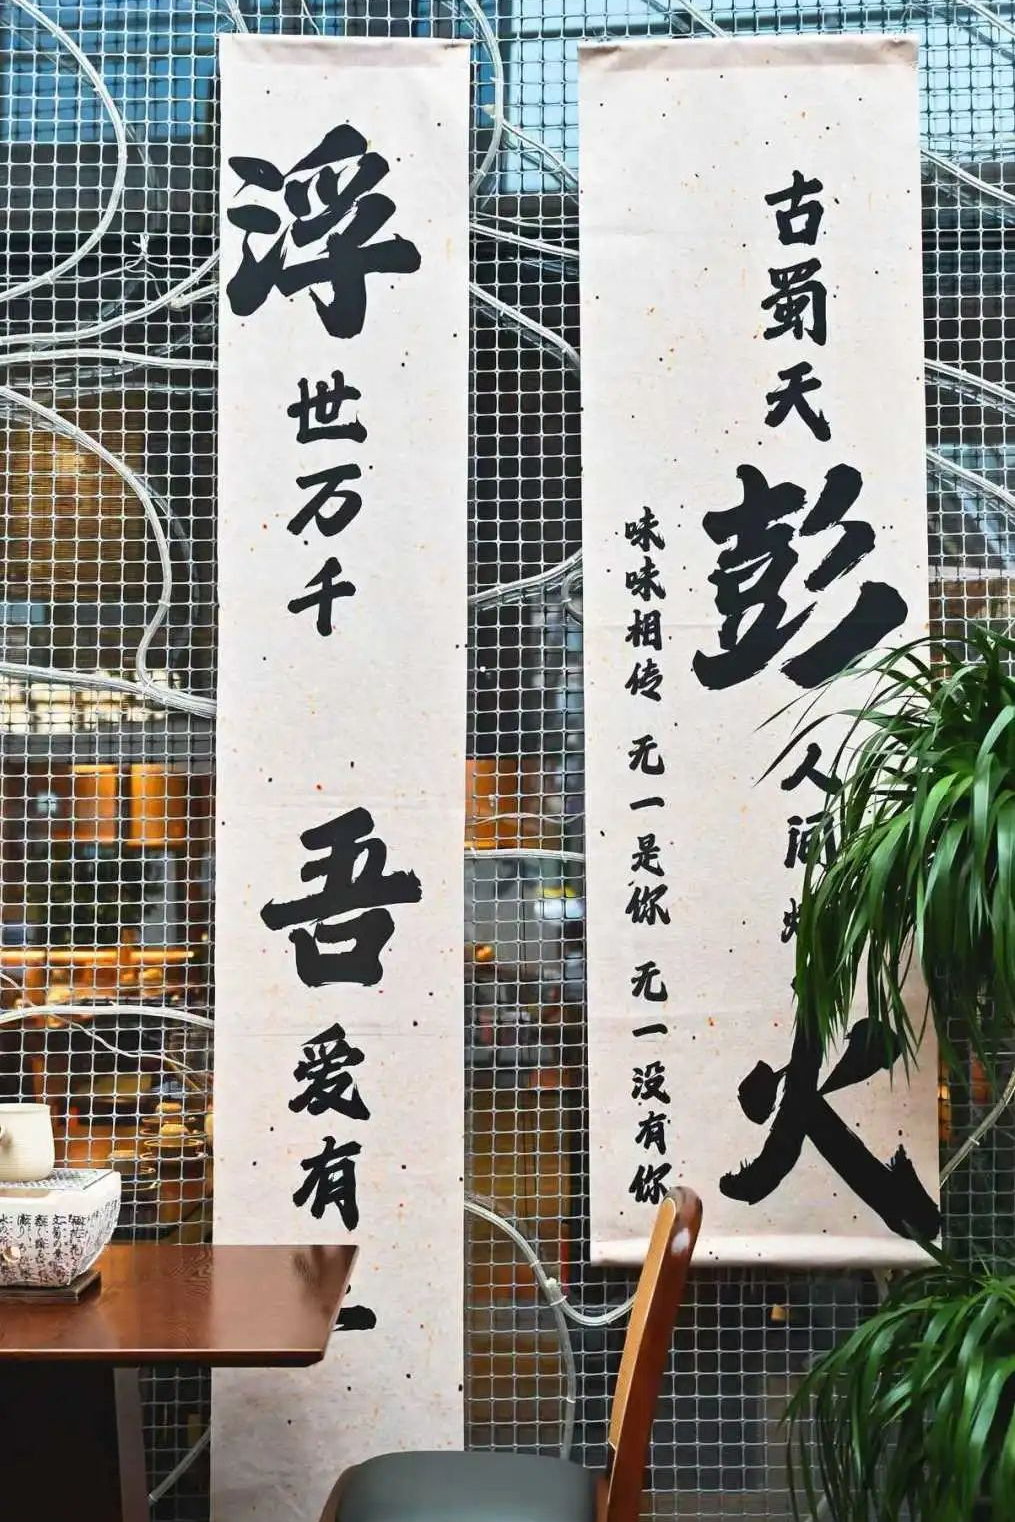 古蜀天彭人间
火
味味相传 无一是你 无一没有你
浮世万千
吾爱有